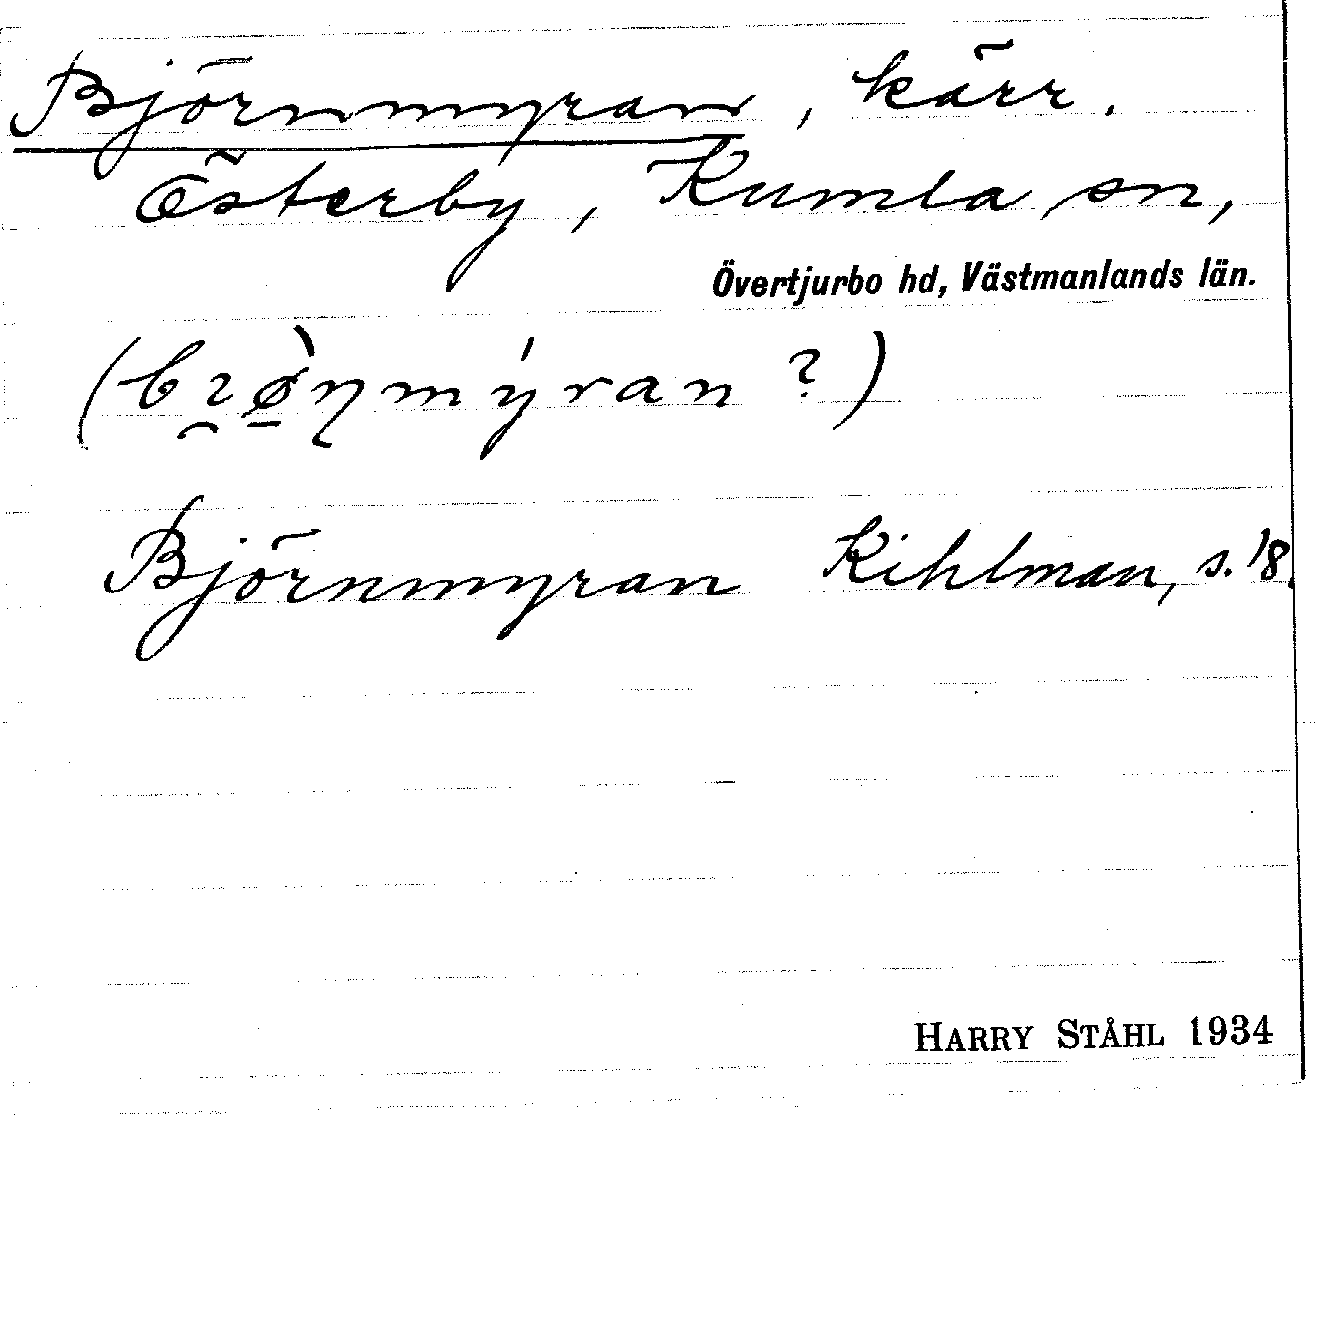 Björnmyran, kärr.
Österby, Kumla sn,
Övertjurbo hd, Västmanlands län.
(bɿ̯ø̠̀ɳmýran ?)
Björnmyran Kihlman, s. 18.
HARRY STÅHL 1934